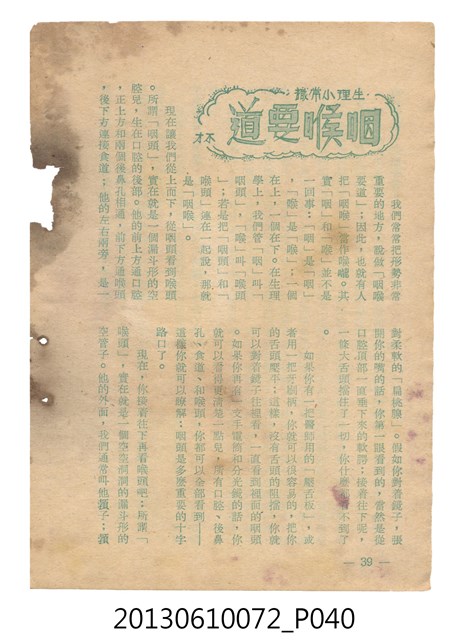 生理小常識
咽喉要道
我們常常把形勢非常
重要的地方，說做「咽喉
要道」；因此，也就有人
把「咽喉」當作喉嚨。其
實「咽」和「喉」並不是
一回事：「咽」是「咽」
，「喉」是「喉」；一個
在上，一個在下。在生理
學上，我們管「咽」叫「
咽頭」，「喉」叫「喉頭
」；若是把「咽頭」和「
喉頭」連在一起說，那就
是「咽喉」。
現在讓我們從上而下，從咽頭看到喉頭
。所謂「咽頭」，實在就是一個漏斗形的空
腔兒，生在口腔的後部。他的前上方通口腔
，正上方和兩個後鼻孔相通，前下方通喉頭
，後下方連接食道；他的左右兩旁，是一
對柔軟的「扁桃腺」。假如你對着鏡子，張
開你的嘴的話，你第一眼看到的，當然是從
口腔頂部一直垂下來的軟腭；接着往下是，
一條大舌頭擋住了一切，你什麼都看不到了
。
如果你有一把醫師用的「壓舌板」，或
者用一把牙刷柄，你就可以很容易的，把你
的舌頭壓平；這樣，沒有舌頭的阻擋，你就
可以對着鏡子往裡看，一直看到裡面的咽頭
。如果你再有一支手電筒和分光鏡的話，你
就可以看得更清楚一點兒，所有口腔、後鼻
孔、食道、和喉頭，你都可以全部看到——
這樣你就可以瞭解：咽頭是多麼重要的十字
路口了。
現在，你接着往下再看喉頭吧；所謂「
喉頭」，實在就是一個空空洞洞的漏斗形的
空管子。他的外面，我們通常叫他頸子；頸
— 39 —
20130610072_P040